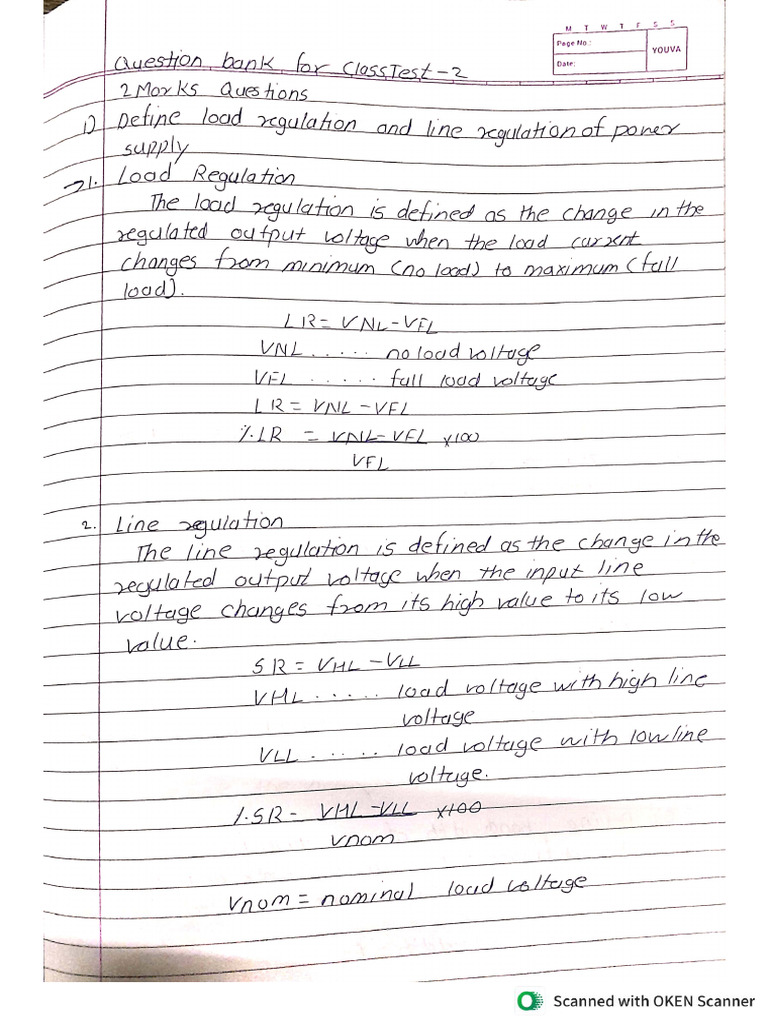 M T W T F S S
Page No.:
YOUVA
Date:
Question bank for ClassTest-2
2 Marks Questions
1) Define load regulation and line regulation of power
supply
→1. Load Regulation
The load regulation is defined as the change in the
regulated output voltage when the load current
changes from minimum (no load) to maximum (full
load).
LR = VNL-VFL
VNL ..... no load voltage
VFL ..... full load voltage
LR = VNL - VFL
%.LR = VNL-VFL x100
VFL
2. Line regulation
The line regulation is defined as the change in the
regulated output voltage when the input line
voltage changes from its high value to its low
value.
SR = VHL - VLL
VHL ..... load voltage with high line
voltage
VLL ..... load voltage with low line
voltage.
%.SR - VHL - VLL x100
Vnom
Vnom = nominal load voltage
Scanned with OKEN Scanner